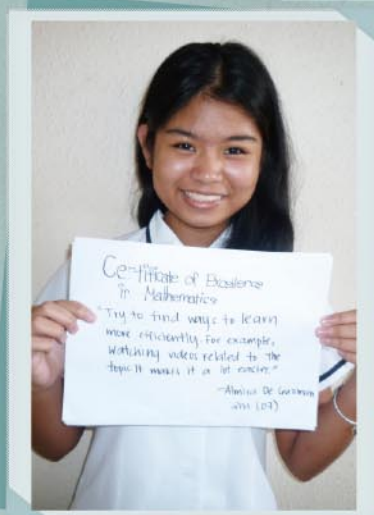 Certificate of Excellence
in Mathematics
"Try to find ways to learn
more efficiently. For example,
watching videos related to the
topic. It makes it a lot easier."
De Guzman
(07)